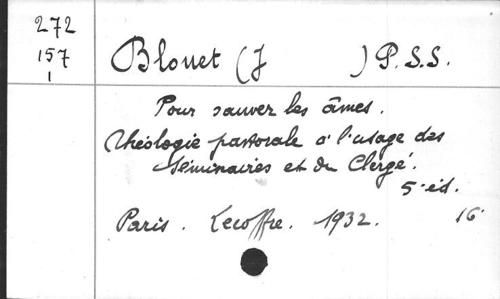 272
157
1
Blouet (J ) P.S.S.
Pour sauver les âmes.
Théologie pastorale à l'usage des
Séminaires et du Clergé.
5e éd.
Paris. Lecoffre. 1932. 16°